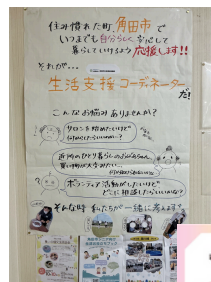 住み慣れた町、角田市で
いつまでも自分らしく、安心して
暮らしていけるよう応援します!!
それが…
生活支援コーディネーター
だ!
こんなお悩みありませんか?
サロンを始めたいけど
何からしたらいいの…?
近所のひとり暮らしの
買い物が大変みたい…
ボランティア活動がしたいけど、
どこに相談したらいいかな?
そんな時 私たちが一緒に考えます!